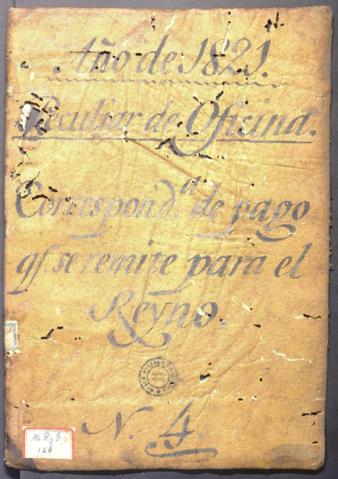 Año de 1821.
Peculiar de Oficina.
Correspond.ª de pago
qᵉ. se remite para el
Reyno.
N. 4
168